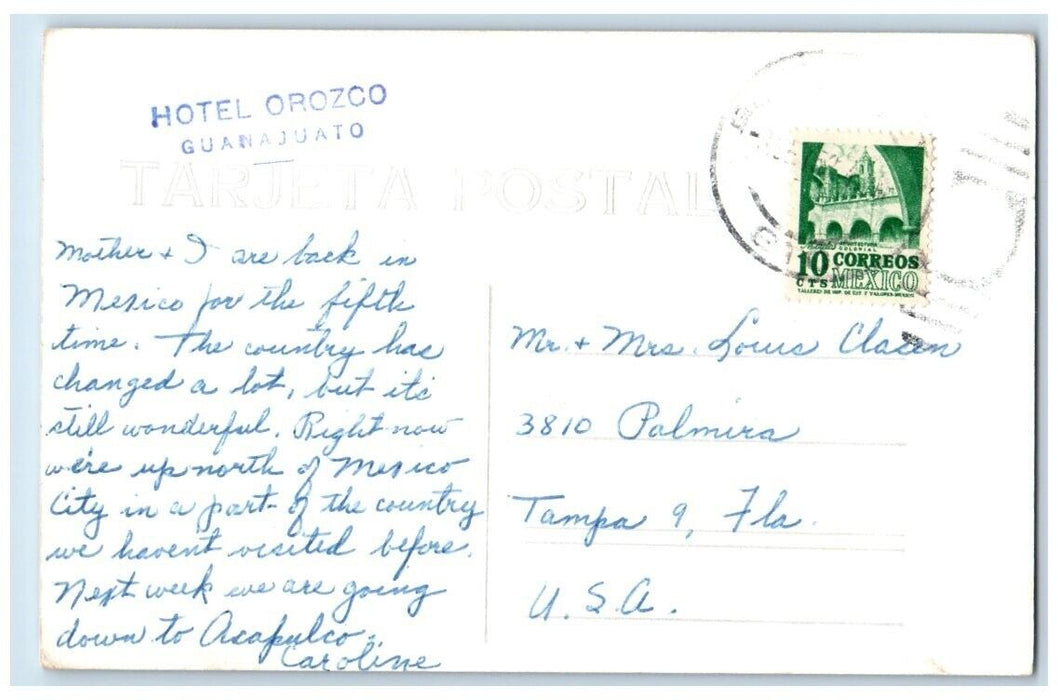 HOTEL OROZCO
GUANAJUATO
TARJETA POSTAL
Mother + I are back in
Mexico for the fifth
time. The country has
changed a lot, but it's
still wonderful. Right now
we're up north of Mexico
City in a part of the country
we haven't visited before.
Next week we are going
down to Acapulco.
Caroline
ARQUITECTURA
COLONIAL
10 CORREOS
CTS MEXICO
TALLERES DE IMP. DE EST. Y VALORES-MEXICO
Mr. + Mrs. Louis Clasen
3810 Palmira
Tampa 9, Fla.
U.S.A.